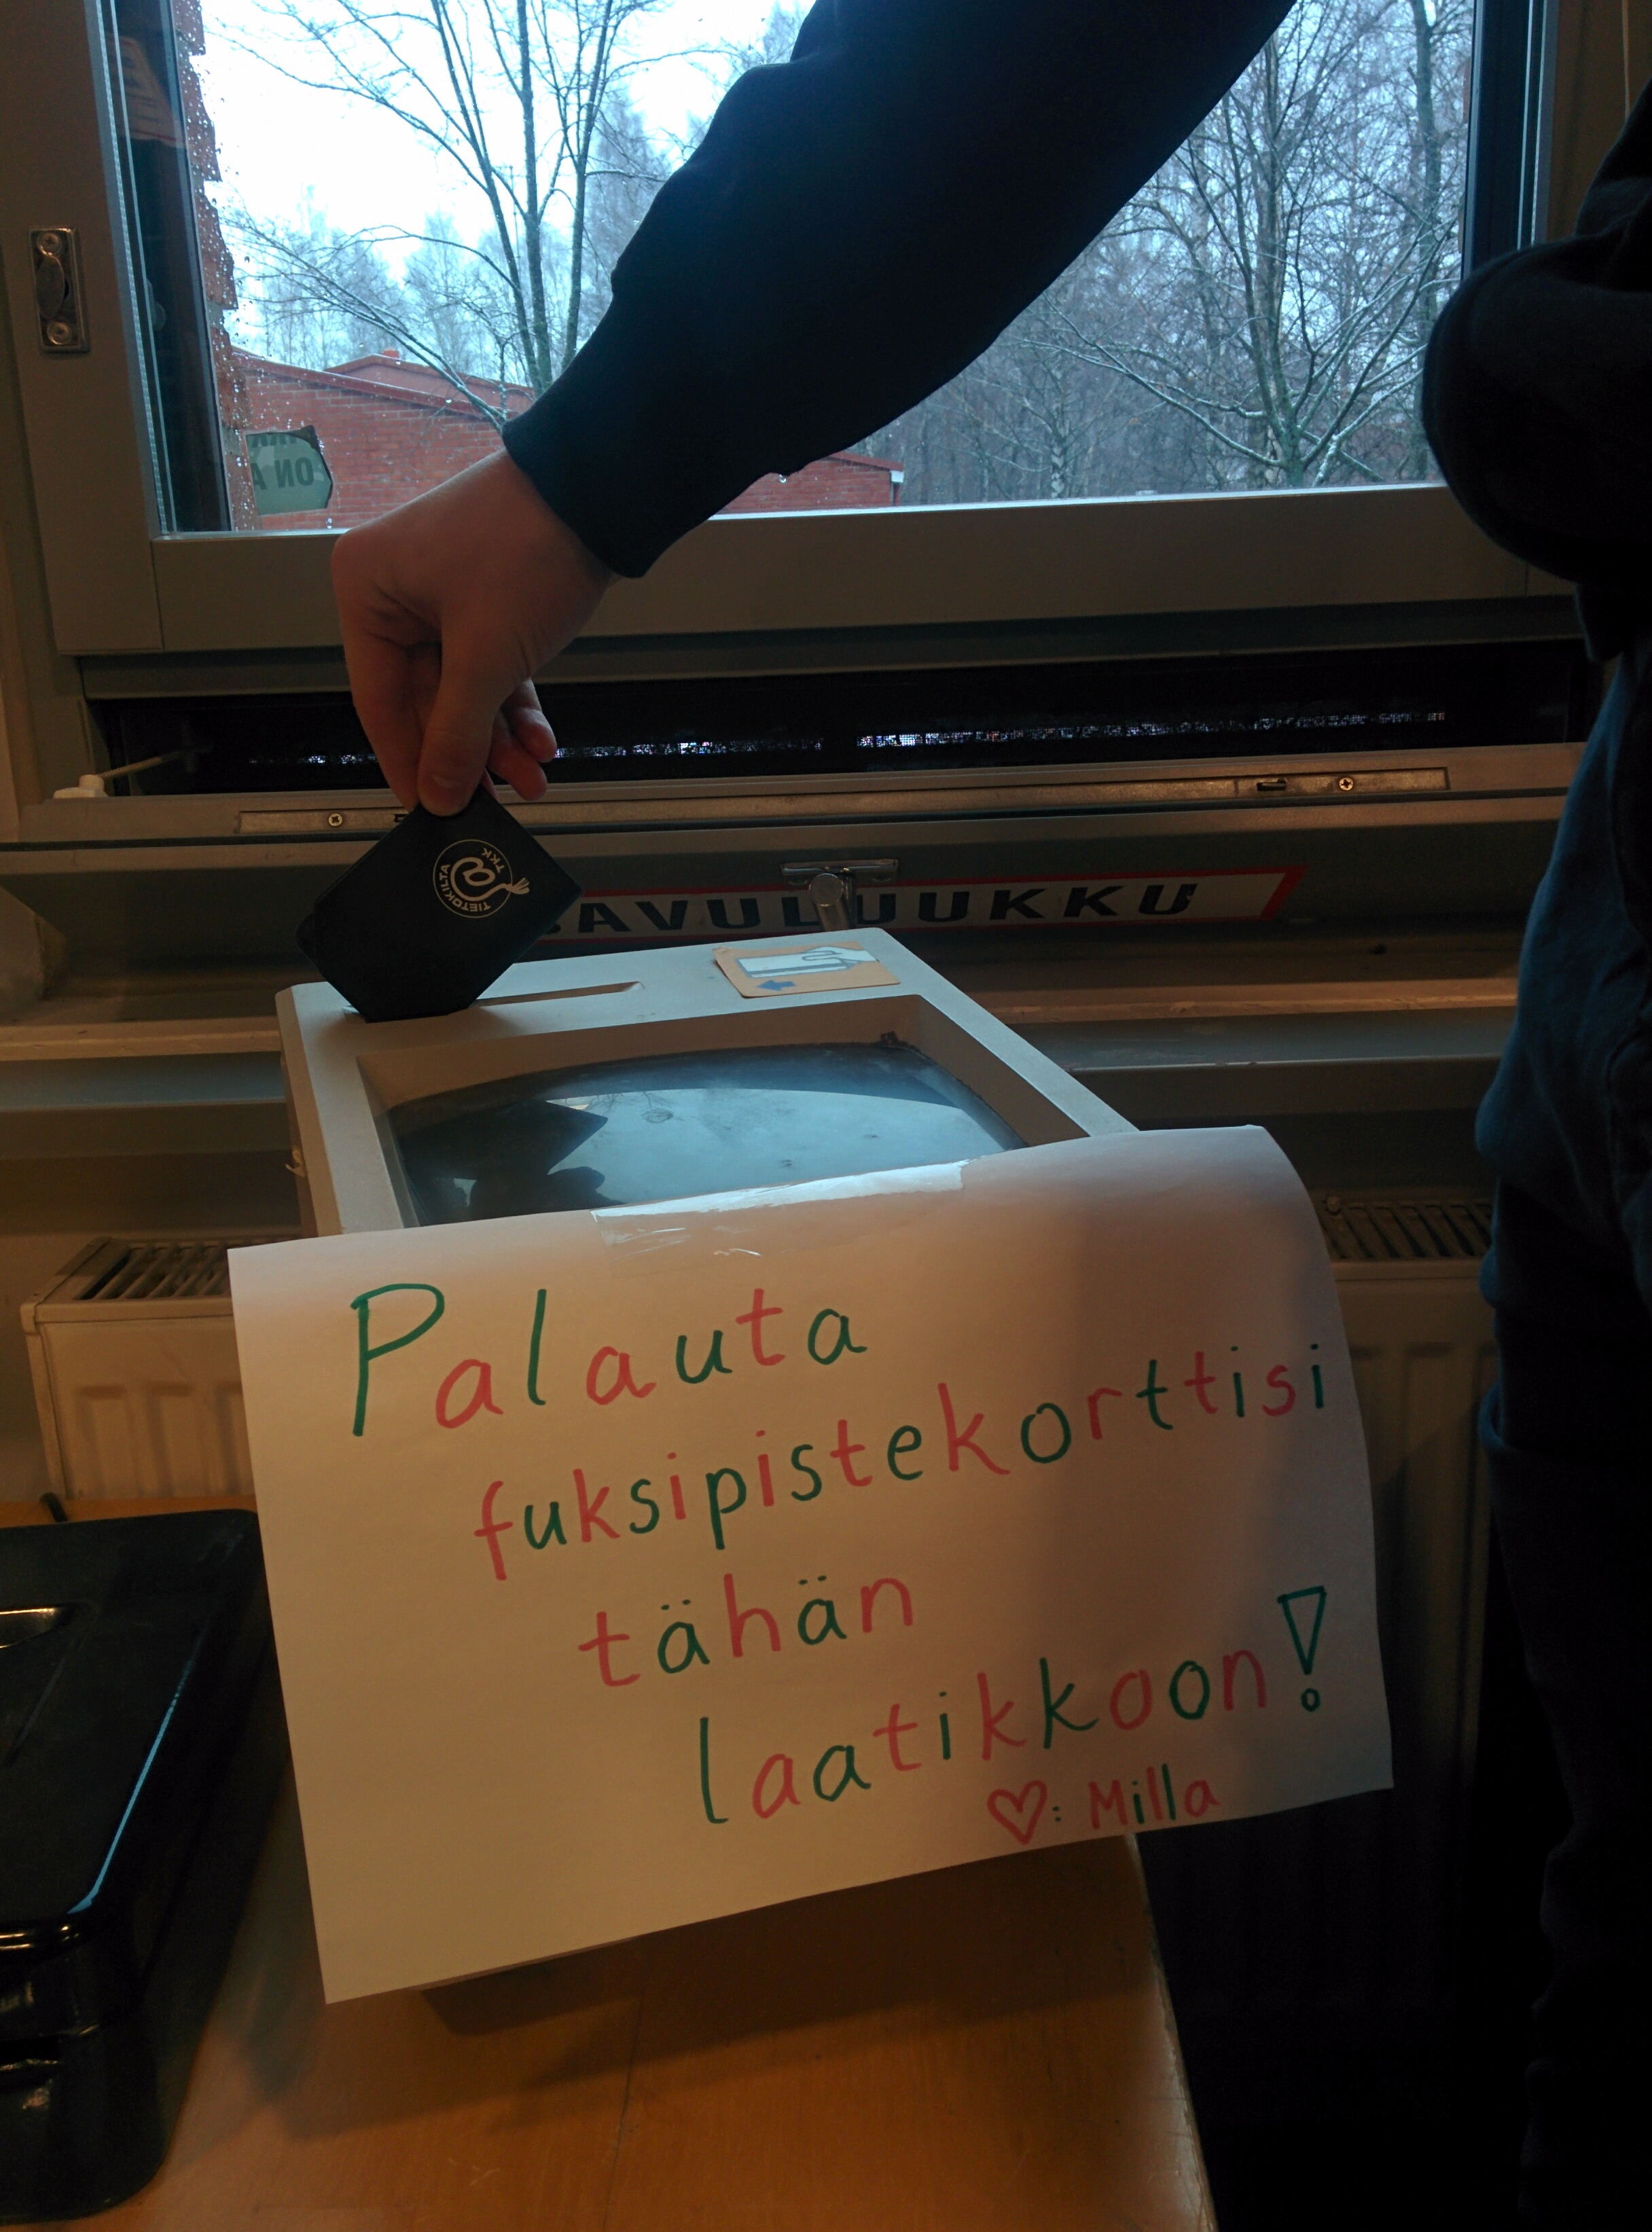 ON A
TIETOKILTA
TKK
SAVULUUKKU
Palauta
fuksipistekorttisi
tähän
laatikkoon!
♡: Milla